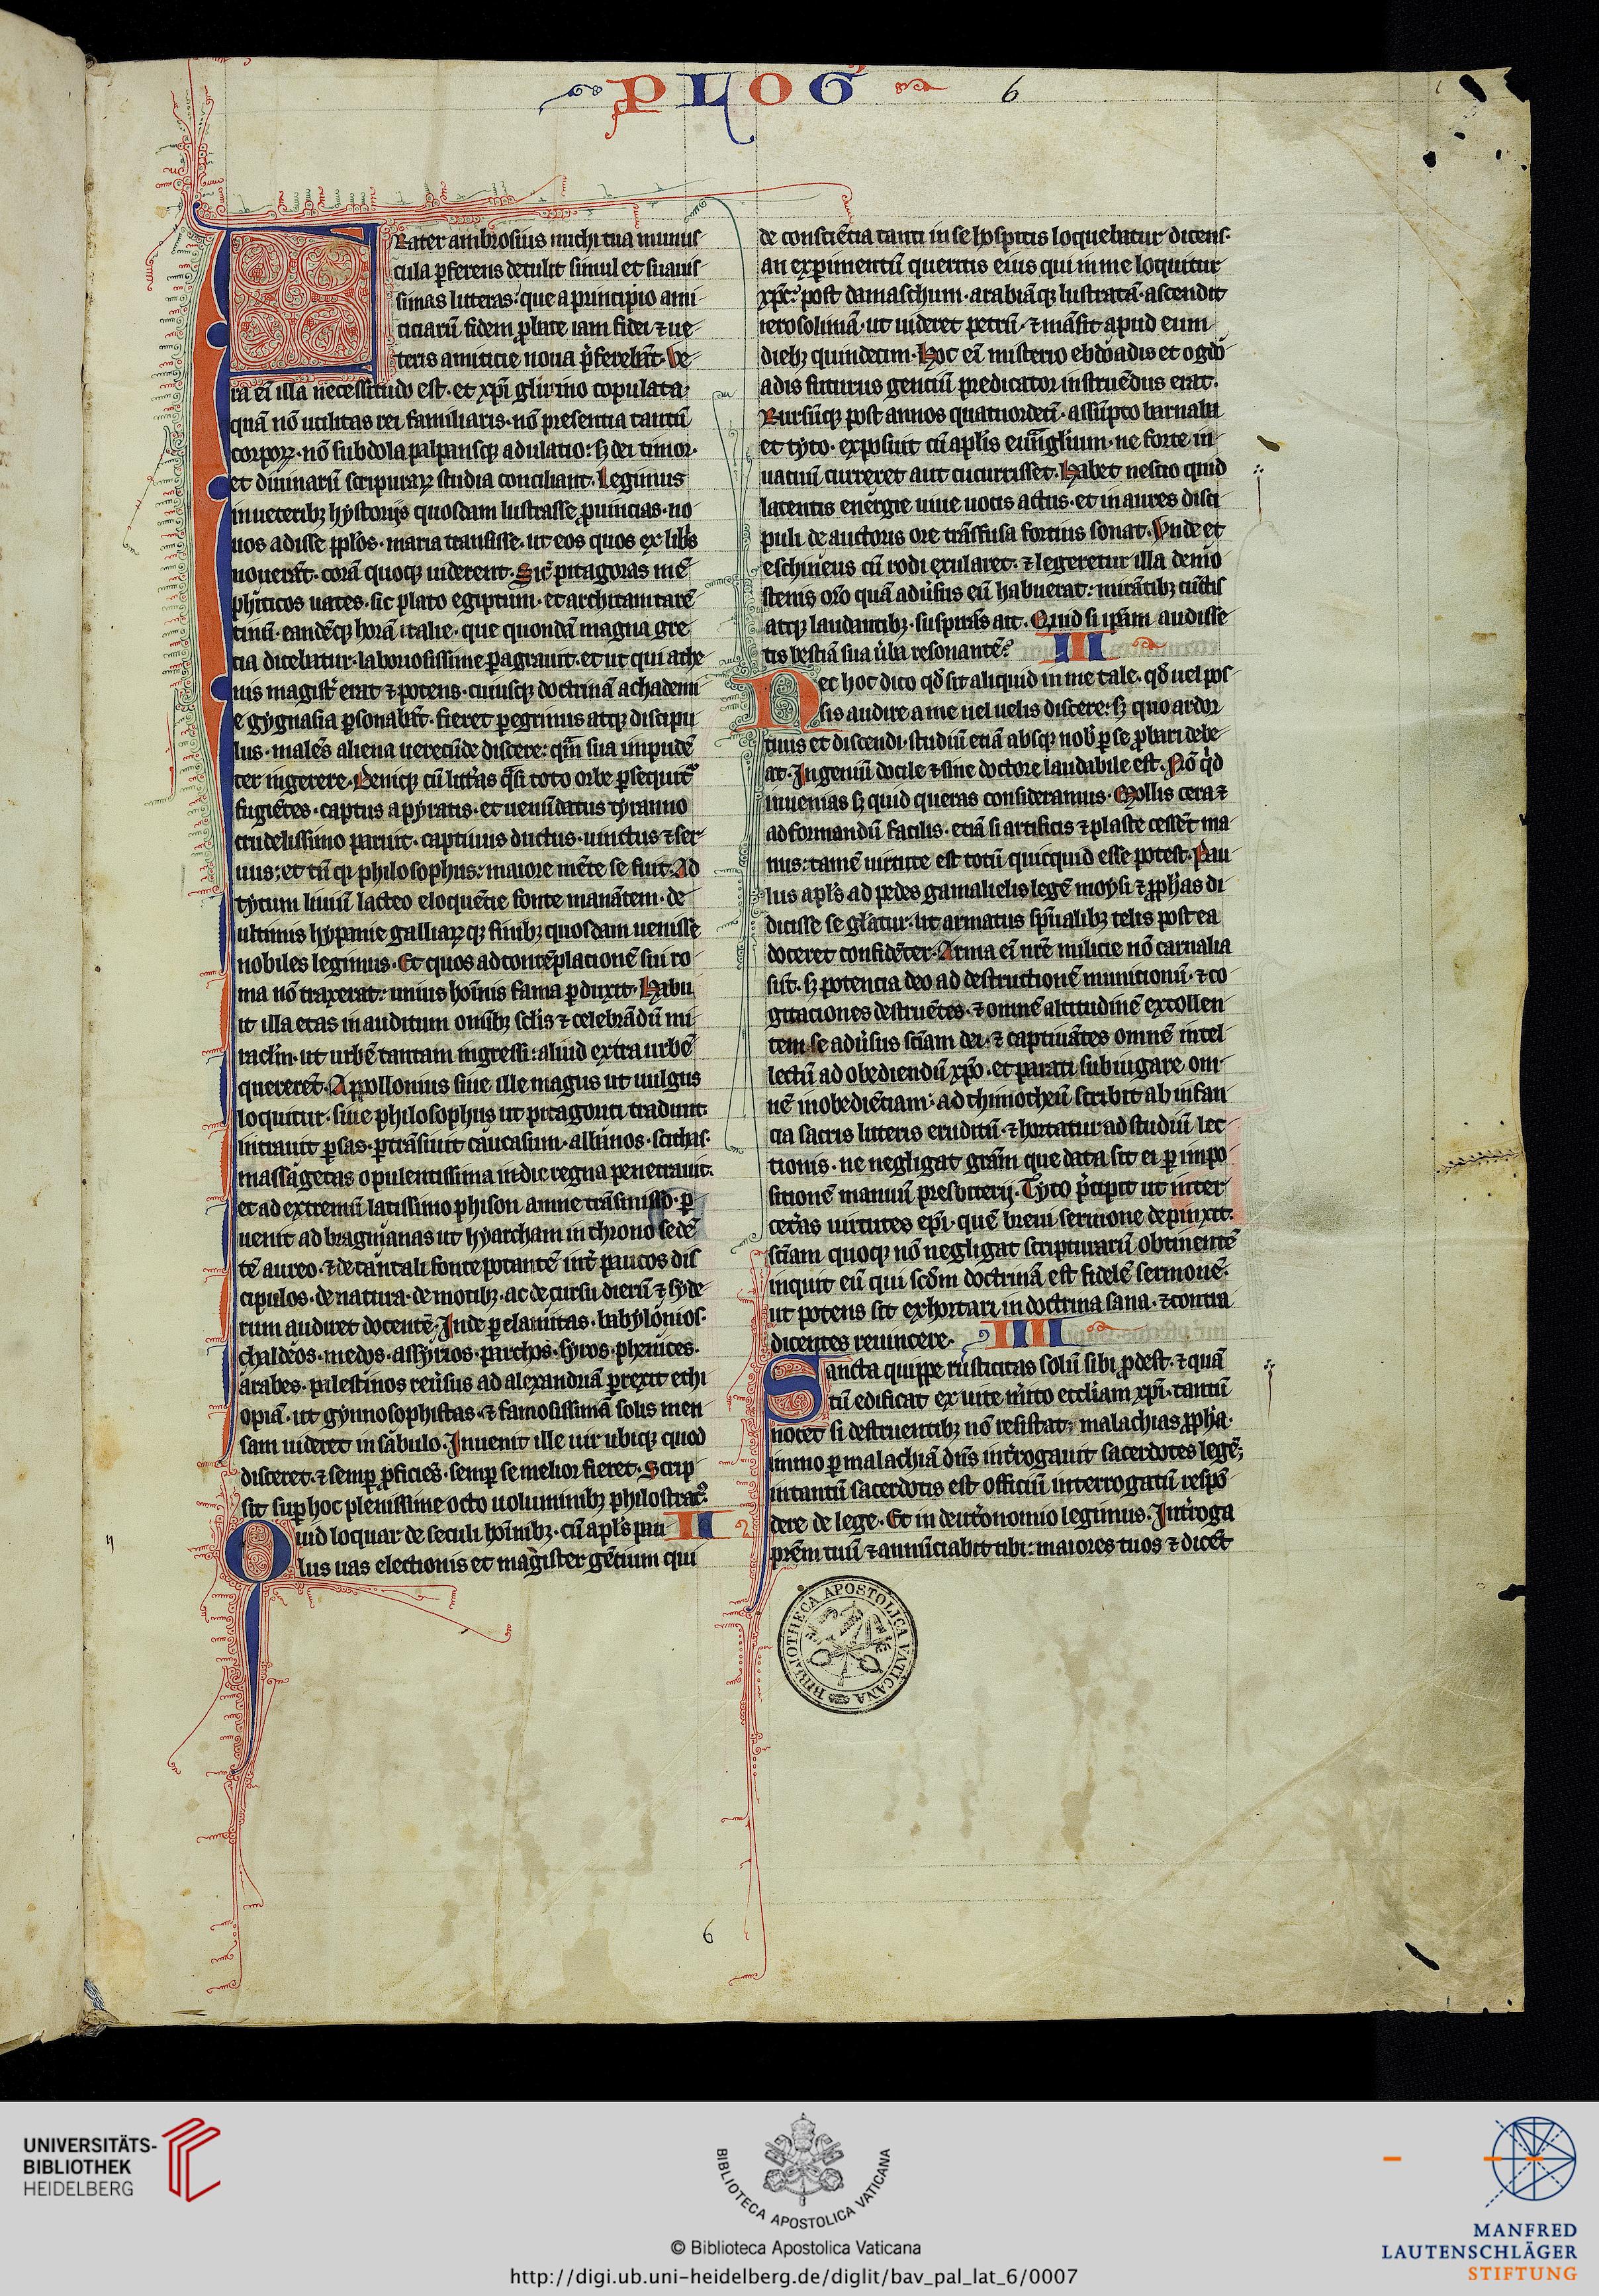 PLOG
6
FRater ambrosius michi tua munus
cula ꝑferens detulit simul et suauis
simas litteras: que a principio ami
ciciarū fidem ꝓbate iam fidei ⁊ ue
teris amiticie noua p̄ferebāt. Ve
ra ēi illa necessitudo est. et xp̄i glutino copulata:
quā nō utilitas rei familiaris. nō presentia tantū
corpoꝝ. nō subdola palpansqꝫ adulatio: sꝫ dei timor.
et diuinarū scripturaꝝ studia conciliant. Legimus
in ueteribꝫ hystorijs quosdam lustrasse ꝓuincias. no
uos adisse pp̄los. maria transisse. ut eos quos ex libr̄s
nouerāt. corā quoqꝫ uiderent. Sic̄ pitagoras mē
phiticos uates. sic plato egiptum. et architam tarē
tinū. eandēqꝫ horā italie. que quondā magna gre
cia dicebatur. laboriosissime ꝑagrauit. et ut qui athe
nis magist̄ erat ⁊ potens. cuiusqꝫ doctrinā achademi
e gygnasia ꝑsonabāt. fieret ꝑegrinus atqꝫ discipu
lus. malēs aliena uerecūde discere: qm̄ sua impudē
ter ingerere. Deniqꝫ cū litt̄as q̄si toto orbe ꝑsequit̄
fugiētes. captus a pyratis. et uenūdatus tyranno
crudelissimo paruit. captiuus ductus. uinctus ⁊ ser
uus: et tn̄ qꝛ philosophus: maiore mēte se fuit. Ad
tytum liuiū lacteo eloquētie fonte manātem. de
ultimis hyspanie galliaꝝqꝫ finibꝫ quosdam uenisse
nobiles legimus. Et quos ad contēplacionē sui ro
ma nō traxerat: unius hoīnis fama ꝑduxit. Habu
it illa etas inauditum omībꝫ sclīs ⁊ celebrādū mi
raclm̄. ut urbē tantam ingressi: aliud extra urbē
quererēt. Appollonius siue ille magus ut uulgus
loquitur. siue philosophus ut pitagorici tradunt.
intrauit ꝑsas. ꝑtrāsiuit caucasum. albanos. scithas.
massagetas opulentissima indie regna penetrauit.
et ad extremū latissimo phison amne trāsmisso. ꝑ
uenit ad bragmanas ut hyarcham in throno sedē
tē aureo. ⁊ de tantali fonte potantē int̄ paucos dis
cipulos. de natura. de motibꝫ. ac de cursu dierū ⁊ syde
rum audiret docentē. Inde ꝑ elamitas. babylonios.
chaldeos. medos. assyrios. parthos. syros. phenices.
arabes. palestinos reūsus ad alexandriā ꝑrexit ethi
opiā. ut gymnosophistas. ⁊ famosissimā solis men
sam uideret in sabulo. Inuenit ille uir ubiqꝫ quod
disceret. ⁊ semꝑ ꝓficiēs. semꝑ se melior fieret. Scrip
sit suꝑ hoc plenissime octo uoluminibꝫ philostrat᷒.
Quid loquar de seculi hoīnibꝫ. cū apl̄s pau II
lus uas electionis et magister gētium qui
de consciētia tanti in se hospitis loquebatur dicens.
an exꝑimentū queritis eius qui in me loquitur
xp̄c᷒: post damaschum. arabiāqꝫ lustratā. ascendit
ierosolimā. ut uideret petrū. ⁊ māsit apud eum
diebꝫ quindecim. Hoc eī misterio ebdoadis et ogdo
adis futurus genciū predicator instruēdus erat.
Rursūqꝫ post annos quatuordecī. assūpto barnaba
et tyto. exposuit cū apl̄is euāglium. ne forte in
uacuū curreret aut cucurrisset. Habet nescio quid
latentis energie uiue uocis actus. et in aures disci
puli de auctoris ore trāsfusa fortius sonat. Vnde et
eschineus cū rodi exularet. ⁊ legeretur illa demo
stenis or̄o quā adūsus eū habuerat: mirātibꝫ cūctis
atqꝫ laudantibꝫ. suspirās ait. Quid si ip̄am audisse
tis bestiā sua ūba resonantē? III
Nec hoc dico qd̄ sit aliquid in me tale. qd̄ uel pos
sis audire a me uel uelis discere: sꝫ quo ardor
tuus et discendi. studiū etiā absqꝫ nob̄ ꝑ se ꝓbari debe
at. Ingeniū docile ⁊ sine doctore laudabile est. Nō q̄d
inuenias sꝫ quid queras consideramus. Mollis cera ⁊
ad formandū facilis. etiā si artificis ⁊ plaste cessēt ma
nus: tamē uirtute est totū quicquid esse potest. Pau
lus apl̄s ad pedes gamalielis legē moysi ⁊ ꝓphās di
dicisse se gl̄atur. ut armatus spūalibꝫ telis post ea
doceret confidēter. Arma eī nr̄e milicie nō carnalia
sūt. sꝫ potencia deo ad destructionē municionū. ⁊ co
gitaciones destruētes. ⁊ omnē altitudinē extollen
tem se adūsus sciām dei. ⁊ captiuātes omnē intel
lectū ad obediendū xp̄o. et parati subiugare om
nē inobediēciam: ad thimotheū scribit ab infan
cia sacris litteris eruditū. ⁊ hortatur ad studiū lec
tionis. ne negligat grām que data sit ei ꝑ impo
sitionē manuū presbiterij. Tyto p̄cipit ut inter
cet̄as uirtutes epī. quē breui sermone depinxit:
sciām quoqꝫ nō negligat scripturarū obtinentē
inquit eū qui scd̄m doctrinā est fidelē sermonē.
ut potens sit exhortari in doctrina sana. ⁊ contra
dicentes reuincere. IIII
Sancta quippe rusticitas solū sibi ꝓdest. ⁊ quā
tū edificat ex uite mīto eccl̄iam xp̄i. tantū
nocet si destruentibꝫ nō resistat: malachias ꝓphā.
immo ꝑ malachiā dn̄s int̄rogauit sacerdotes legē:
intantū sacerdotis est officiū interrogatū respō
dere de lege. Et in deut̄onomio legimus. Int̄roga
prēm tuū ⁊ annūciabit tibi: maiores tuos ⁊ dicēt
BIBLIOTHECA APOSTOLICA VATICANA
6
UNIVERSITÄTS-
BIBLIOTHEK
HEIDELBERG
BIBLIOTECA APOSTOLICA VATICANA
© Biblioteca Apostolica Vaticana
http://digi.ub.uni-heidelberg.de/diglit/bav_pal_lat_6/0007
MANFRED
LAUTENSCHLÄGER
STIFTUNG